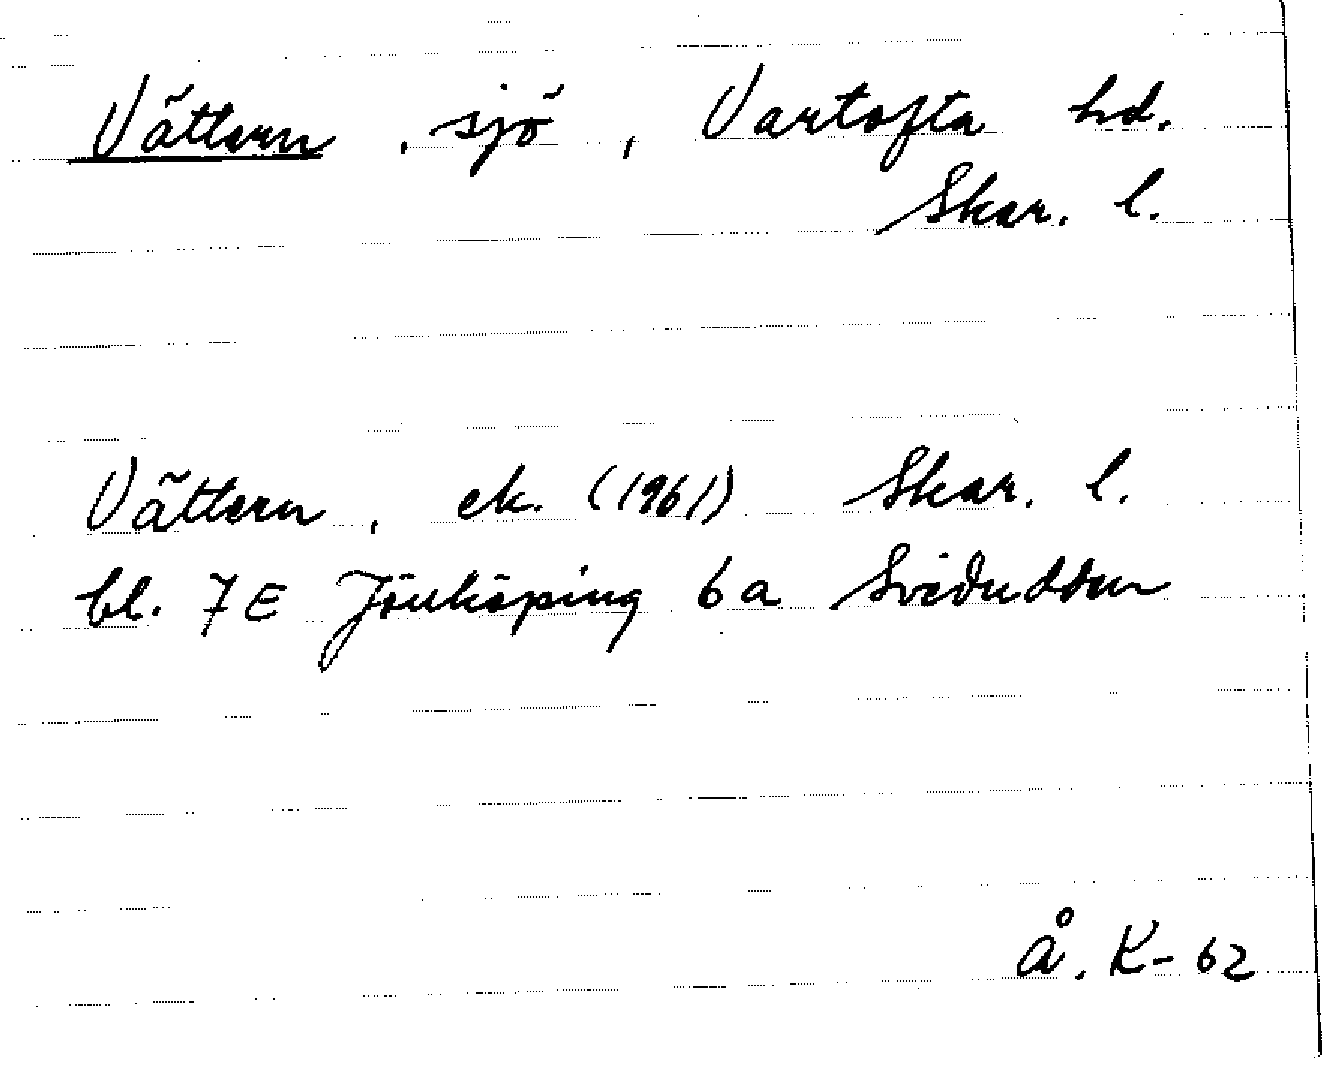 Vättern, sjö, Vartofta hd.
Skar. l.
Vättern, ek. (1961) Skar. l.
bl. 7E Jönköping 6a Svidudden
Å. K-62